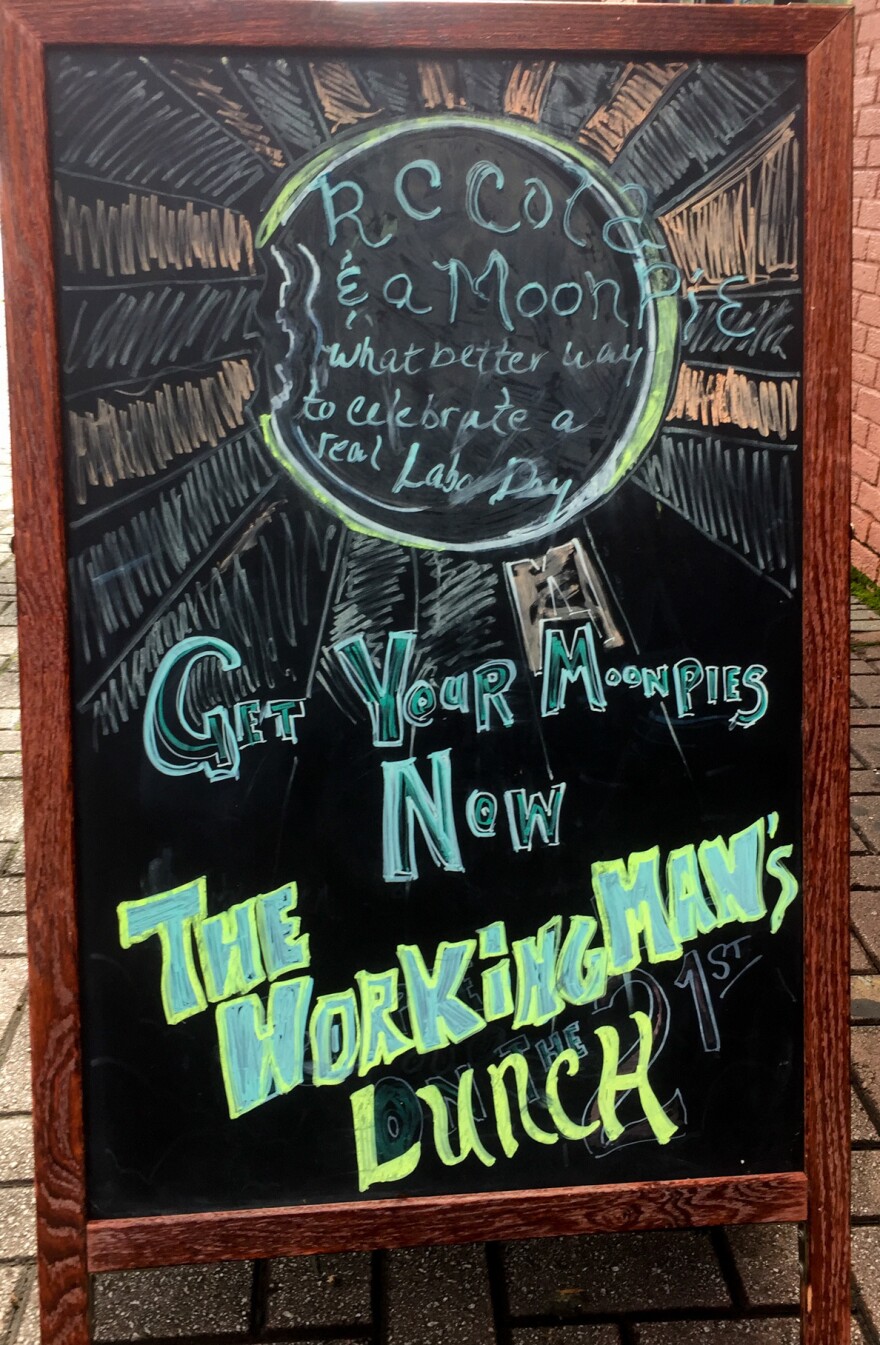 RC Cola
& a MoonPie
what better way
to celebrate a
real Labo Day
Get Your MoonPies
Now
The
WorkingMan's
Lunch
ON THE 21ST